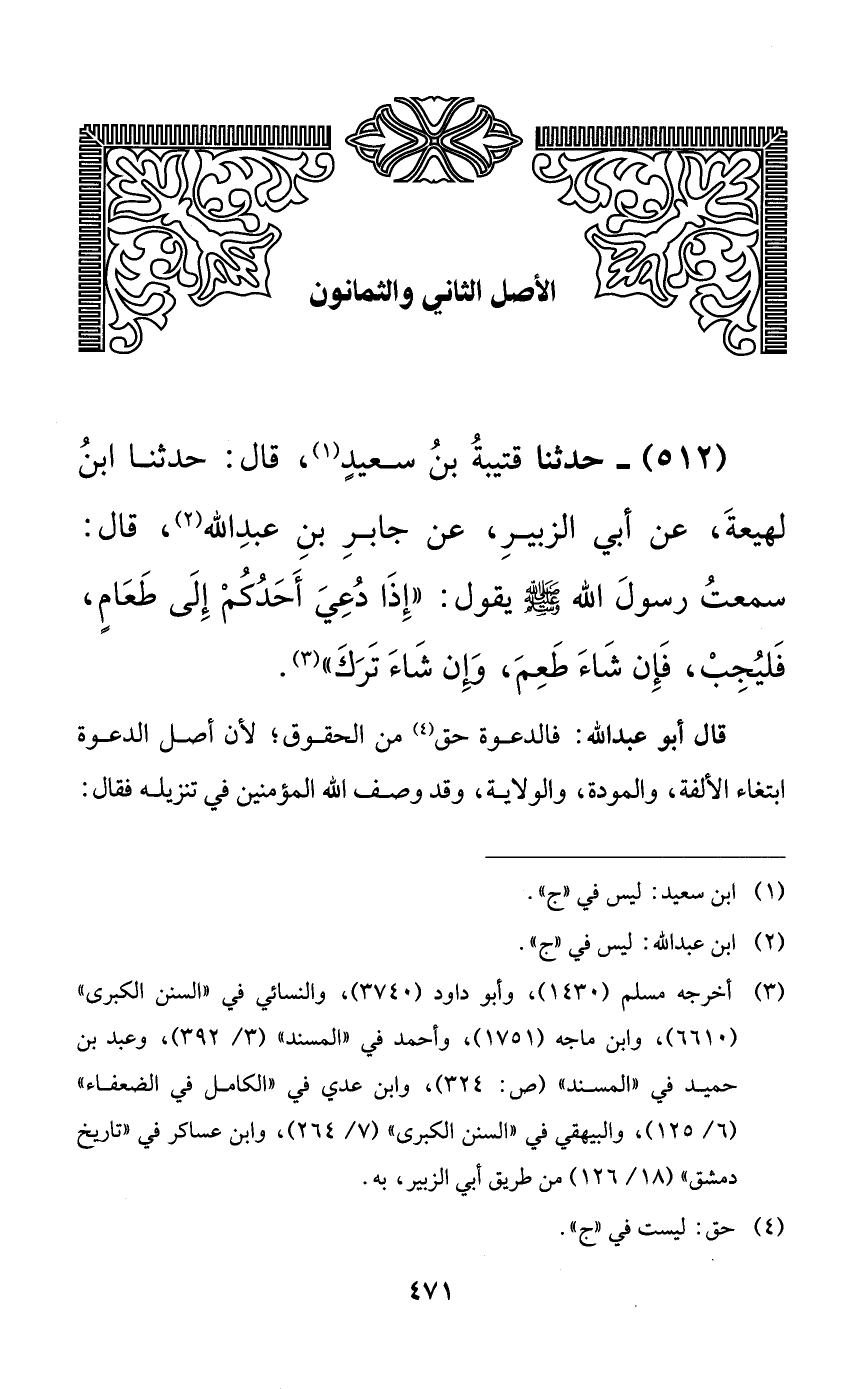 الأصل الثاني والثمانون
(٥١٢) ـ حدثنا قتيبةُ بنُ سـعيدٍ(١)، قال: حدثنـا ابنُ
لهيعةَ، عن أبي الزبيـرِ، عن جابـرِ بنِ عبدِالله(٢)، قال:
سمعتُ رسولَ الله ﷺ يقول: «إِذَا دُعِيَ أَحَدُكُمْ إِلَى طَعَامٍ،
فَليُجِبْ، فَإِن شَاءَ طَعِمَ، وَإِن شَاءَ تَرَكَ»(٣).
قال أبو عبدالله: فالدعـوة حق(٤) من الحقـوق؛ لأن أصـل الدعـوة
ابتغاء الألفة، والمودة، والولايـة، وقد وصـف الله المؤمنين في تنزيلـه فقال:
(١) ابن سعيد: ليس في «ج».
(٢) ابن عبدالله: ليس في «ج».
(٣) أخرجه مسلم (١٤٣٠)، وأبو داود (٣٧٤٠)، والنسائي في «السنن الكبرى»
(٦٦١٠)، وابن ماجه (١٧٥١)، وأحمد في «المسند» (٣/ ٣٩٢)، وعبد بن
حميـد في «المسـند» (ص: ٣٢٤)، وابن عدي في «الكامـل في الضعفـاء»
(٦/ ١٢٥)، والبيهقي في «السنن الكبرى» (٧/ ٢٦٤)، وابن عساكر في «تاريخ
دمشق» (١٨/ ١٢٦) من طريق أبي الزبير، به.
(٤) حق: ليست في «ج».
٤٧١